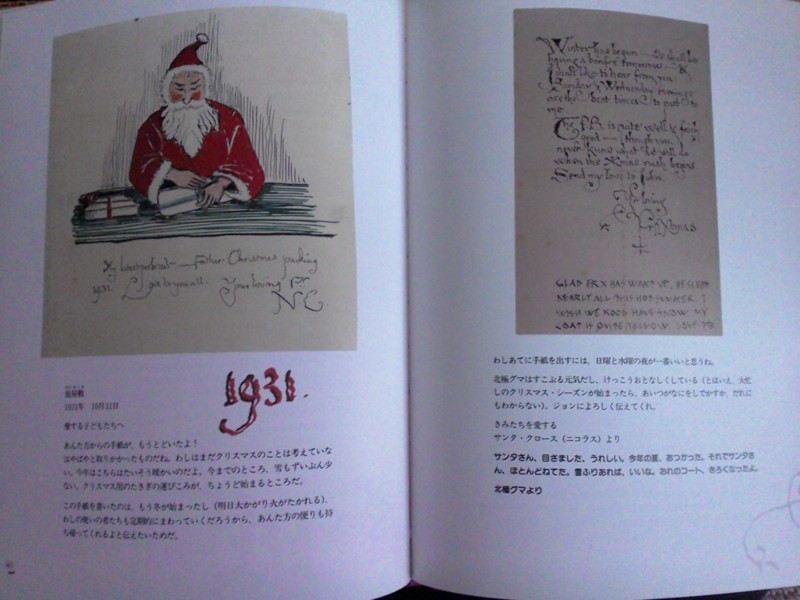 My latest portrait — Father Christmas packing
1931. Love to you all. Your loving Fr.
N.C.
1931.
1931年 10月31日
愛する子どもたちへ
あんた方からの手紙が、もうとどいたよ!
はやばやと取りかかったものだね。わしはまだクリスマスのことは考えていな
い。今年はこちらはたいそう暖かいのだよ。今までのところ、雪もずいぶん少
ない。クリスマス用のたきぎの運びこみが、ちょうど始まるところだ。
この手紙を書いたのは、もう冬が始まったし(明日大かがり火がたかれる)、
わしの使いの者たちも定期的にまわっていくだろうから、あんた方の便りも持
ち帰ってくれるよと伝えたいためだ。
Winter has begun — We shall be
having a bonfire tomorrow — &
I should like to hear from you.
Sunday & Wednesday evenings
are the best times to post to
me.
The P.B. is quite well & fairly
good — (though you
never know what he will do
when the Xmas rush begins.
Send my love to John.
Yr loving
Fr Nic Xmas
GLAD FR X HAS WAKT UP. HE SLEPT
NEARLY ALL THIS HOT SUMMER. I
WISH WE KOOD HAVE SNOW. MY
COAT IS QUITE YELLOW. LOVE PB
わしあてに手紙を出すには、日曜と水曜の夜が一番いいと思うね。
北極グマはすこぶる元気だし、けっこうおとなしくしている(とはいえ、大忙
しのクリスマス・シーズンが始まったら、あいつがなにをしでかすか、だれに
もわからない)。ジョンによろしく伝えてくれ。
きみたちを愛する
サンタ・クロース(ニコラス)より
サンタさん、目さました、うれしい。今年の夏、あつかった。それでサンタさ
ん、ほとんどねてた。雪ふりあれば、いいな。おれのコート、きろくなったよ。
北極グマより